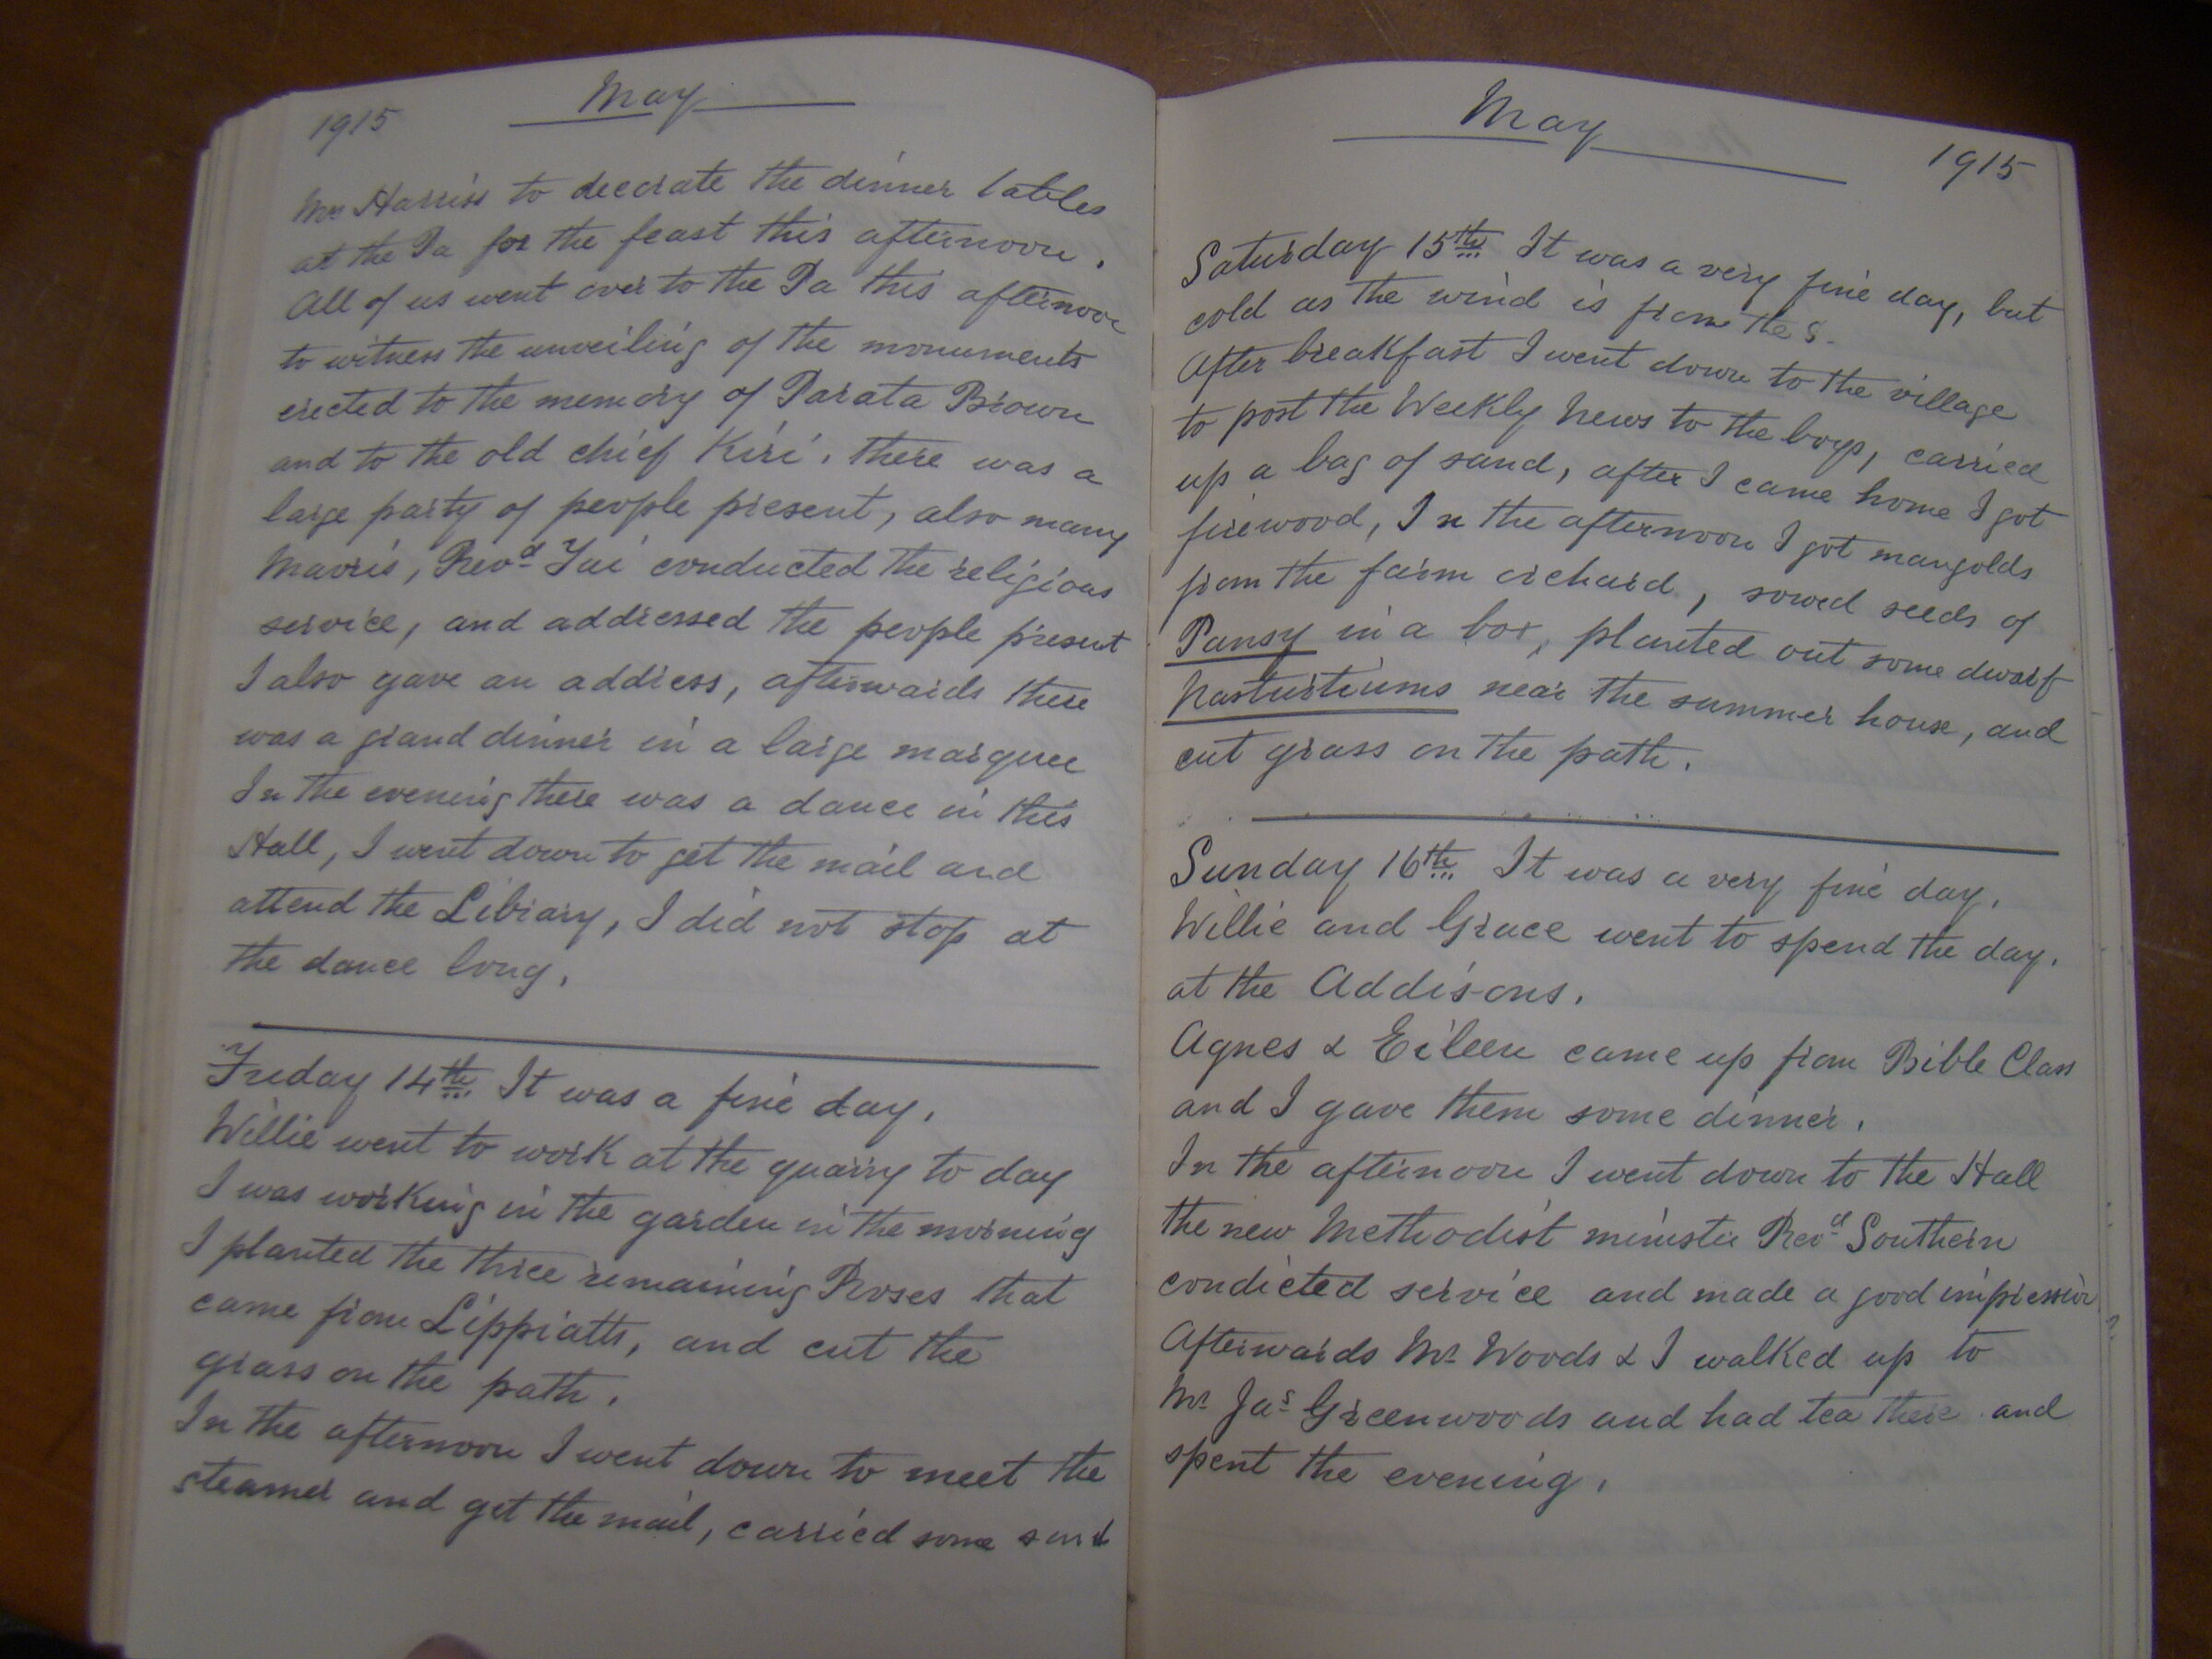 1915 May
Mrs Harriss to decorate the dinner tables
at the Pa for the feast this afternoon.
All of us went over to the Pa this afternoon
to witness the unveiling of the monuments
erected to the memory of Parata Brown
and to the old chief Kiri. there was a
large party of people present, also many
Maoris, Revd Tai conducted the religious
service, and addressed the people present
I also gave an address, afterwards there
was a grand dinner in a large marquee
In the evening there was a dance in this
Hall, I went down to get the mail and
attend the Library, I did not stop at
the dance long.
Friday 14th It was a fine day.
Willie went to work at the quarry to day
I was working in the garden in the morning
I planted the three remaining Roses that
came from Lippiatts, and cut the
grass on the path.
In the afternoon I went down to meet the
steamer and get the mail, carried some sand
May 1915
Saturday 15th It was a very fine day, but
cold as the wind is from the S.
After breakfast I went down to the village
to post the Weekly News to the boys, carried
up a bag of sand, after I came home I got
firewood, In the afternoon I got mangolds
from the farm orchard, sowed seeds of
Pansy in a box, planted out some dwarf
Nasturtiums near the summer house, and
cut grass on the path.
Sunday 16th It was a very fine day.
Willie and Grace went to spend the day.
at the Addisons.
Agnes & Eileen came up from Bible Class
and I gave them some dinner.
In the afternoon I went down to the Hall
the new Methodist minister Revd Southern
condicted service and made a good impression
Afterwards Mr Woods & I walked up to
Mr Jas Greenwoods and had tea there and
spent the evening.